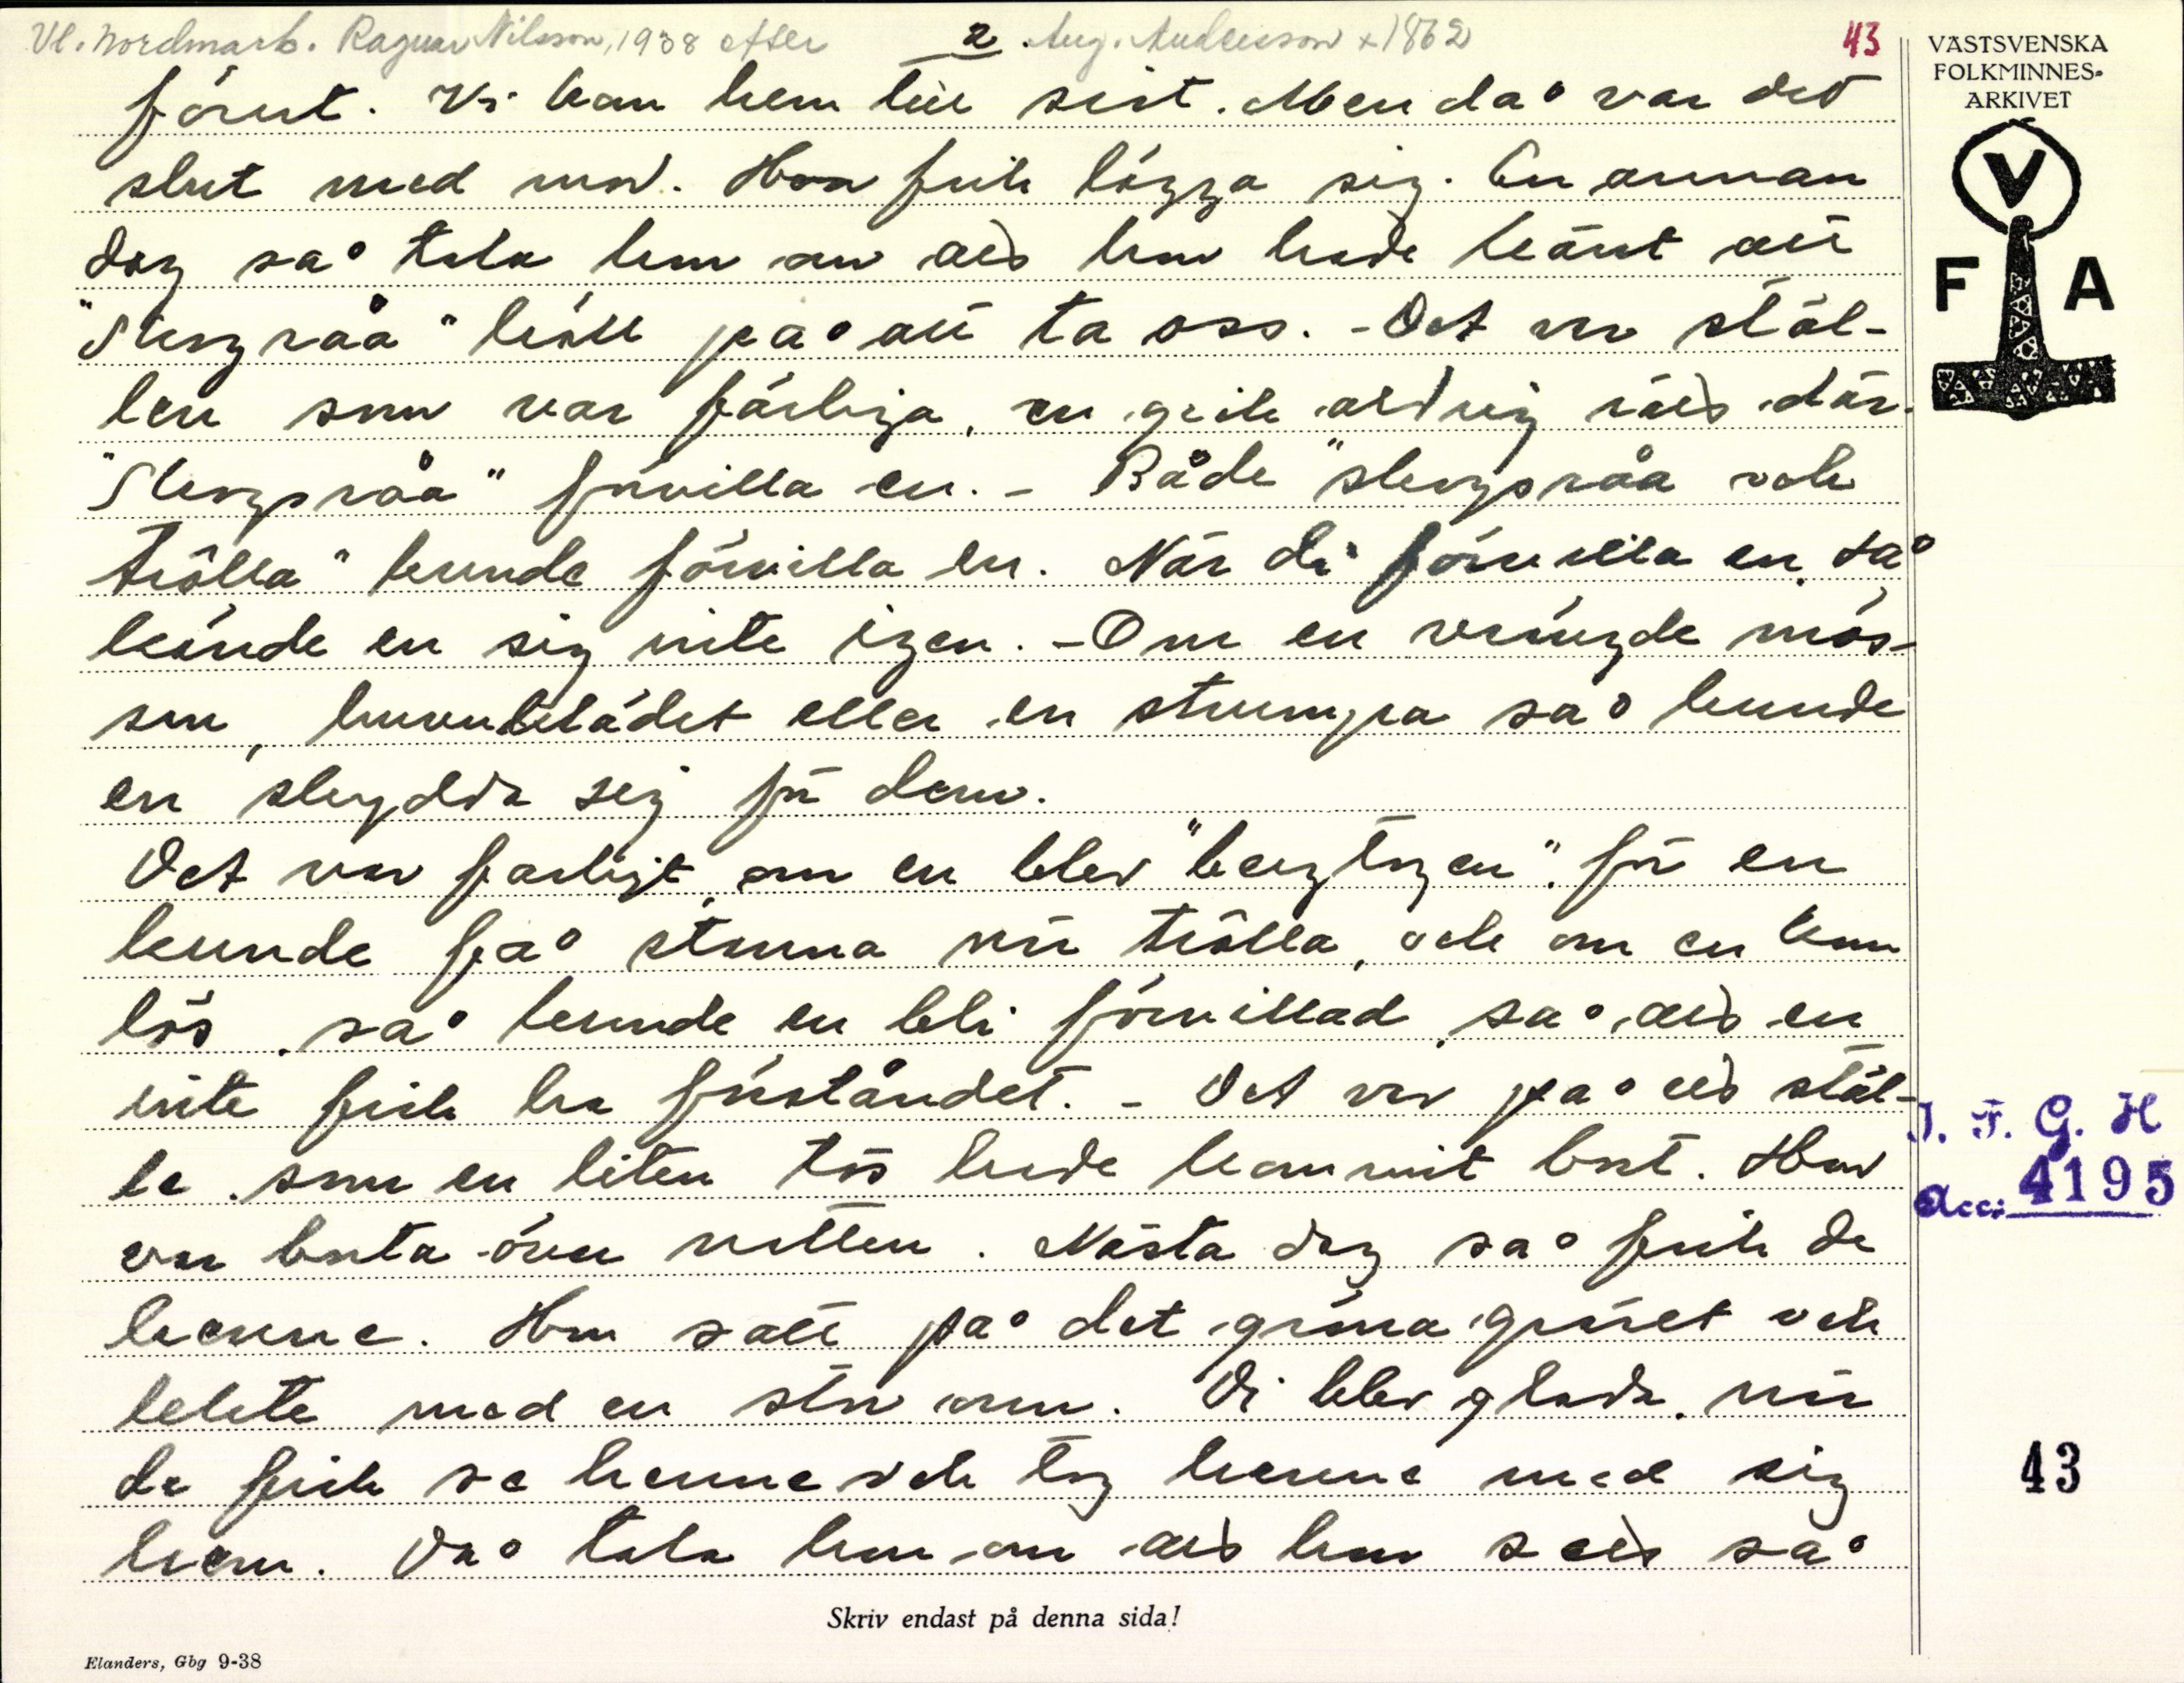 Vl. Nordmark. Ragnar Nilsson, 1938 efter 2. Aug. Andersson * 1862 43
förut. Vi kom hem till sist. Men då var det
slut med mor. Hon fick lägga sig. En annan
dag så tala hon om att hon hade känt att
"Skogsråa" höll på att ta oss. - Det var stäl-
len som var färliga, en gick aldrig rätt där.
"Skogsråa" förvilla en. - Både "skogsråa och
trölla" kunde förvilla en. När di förvilla en, så
kände en sig inte igen. - Om en vrängde mös-
san, huvuklädet eller en strumpa så kunde
en skydda sig för dem.
Det var farligt, om en blev "bergtagen". för en
kunde få stanna när trölla, och om en kom
lös, så kunde en bli förvillad, så att en
inte fick ha förståndet. - Det var på ett stäl-
le, som en liten tös hade kommit bort. Hon
var borta över natten. Nästa dag så fick de
henne. Hon satt på det gröna gräset och
lekte med en stor orm. Di blev glada, när
de fick se henne och tog henne med sig
hem. Då tala hon om att hon sett så
VÄSTSVENSKA
FOLKMINNES-
ARKIVET
V
F A
I. F. G. H
Acc: 4195
43
Skriv endast på denna sida!
Elanders, Gbg 9-38